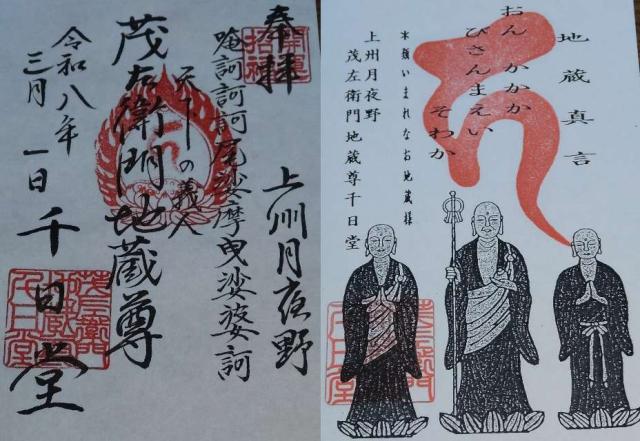 奉拝
開運
招福
上州月夜野
唵訶訶訶尾娑摩曳娑婆訶
天下の義人
茂左衛門地蔵尊
令和八年
三月一日
千日堂
地蔵真言
おん かかか
びさんまえい
そわか
本類いまれなお地蔵様
上州月夜野
茂左衛門地蔵尊千日堂